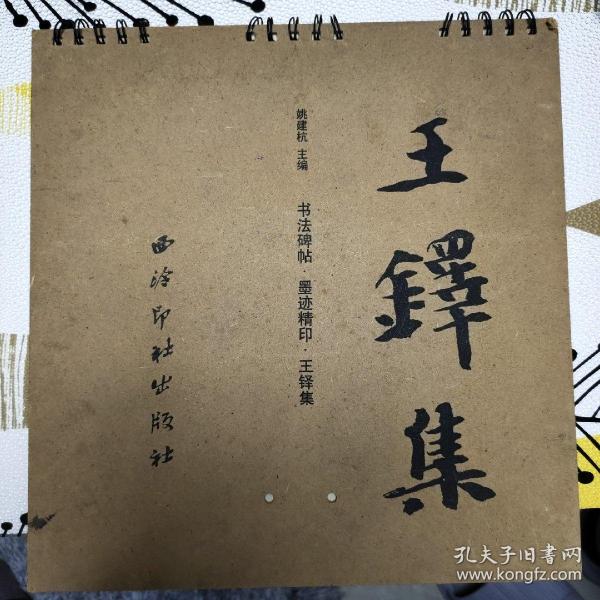 王鐸集
姚建杭 主编
书法碑帖·墨迹精印·王铎集
西泠印社出版社
孔夫子旧书网
www.kongfz.com